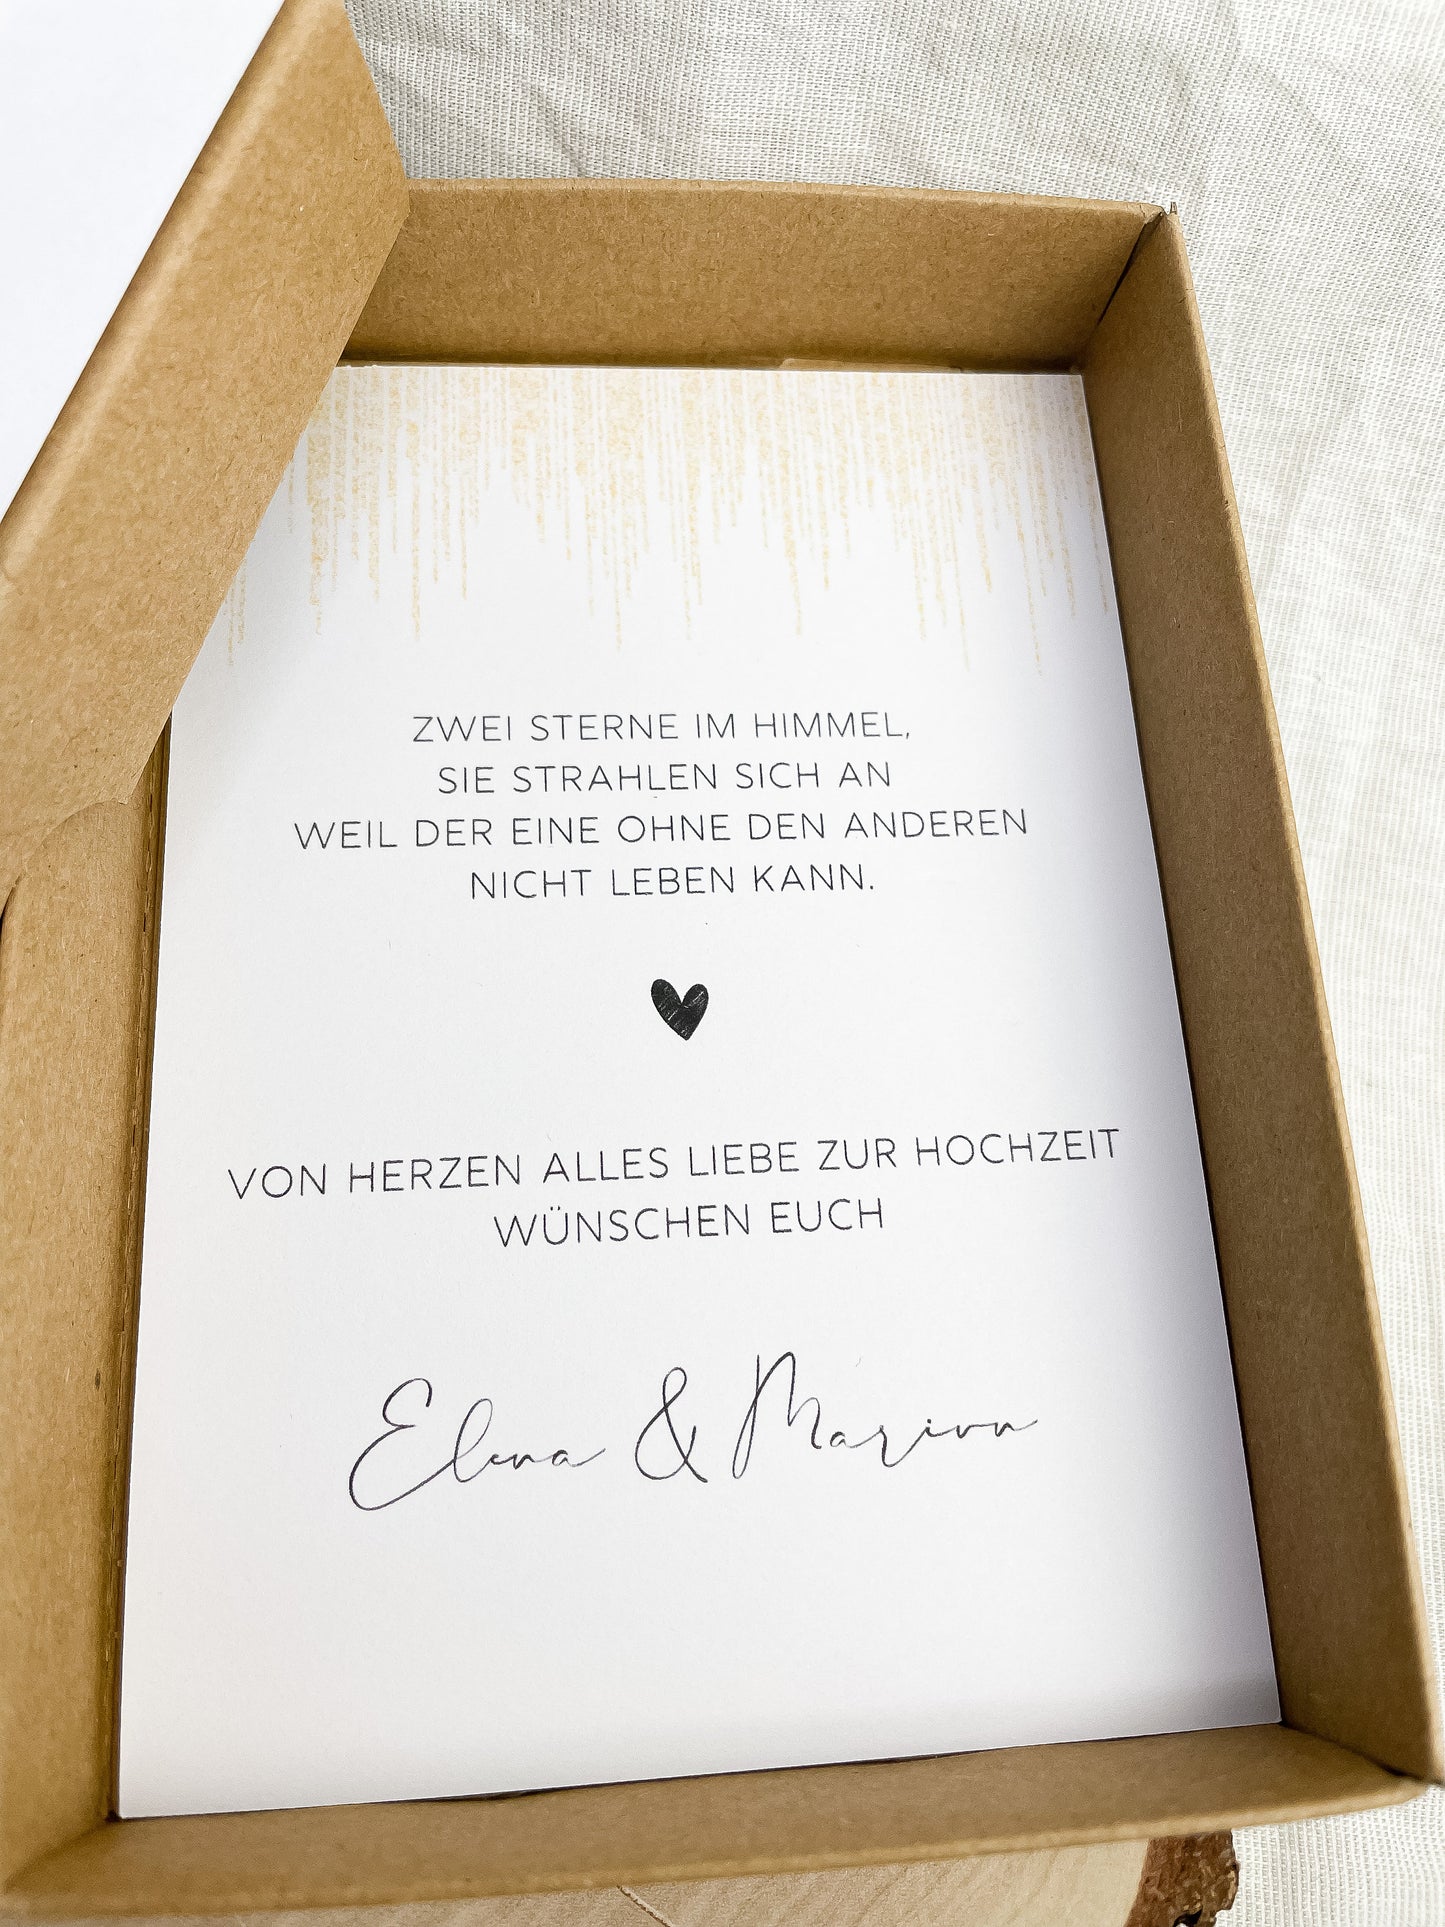 ZWEI STERNE IM HIMMEL,
SIE STRAHLEN SICH AN
WEIL DER EINE OHNE DEN ANDEREN
NICHT LEBEN KANN.
VON HERZEN ALLES LIEBE ZUR HOCHZEIT
WÜNSCHEN EUCH
Elena & Marion